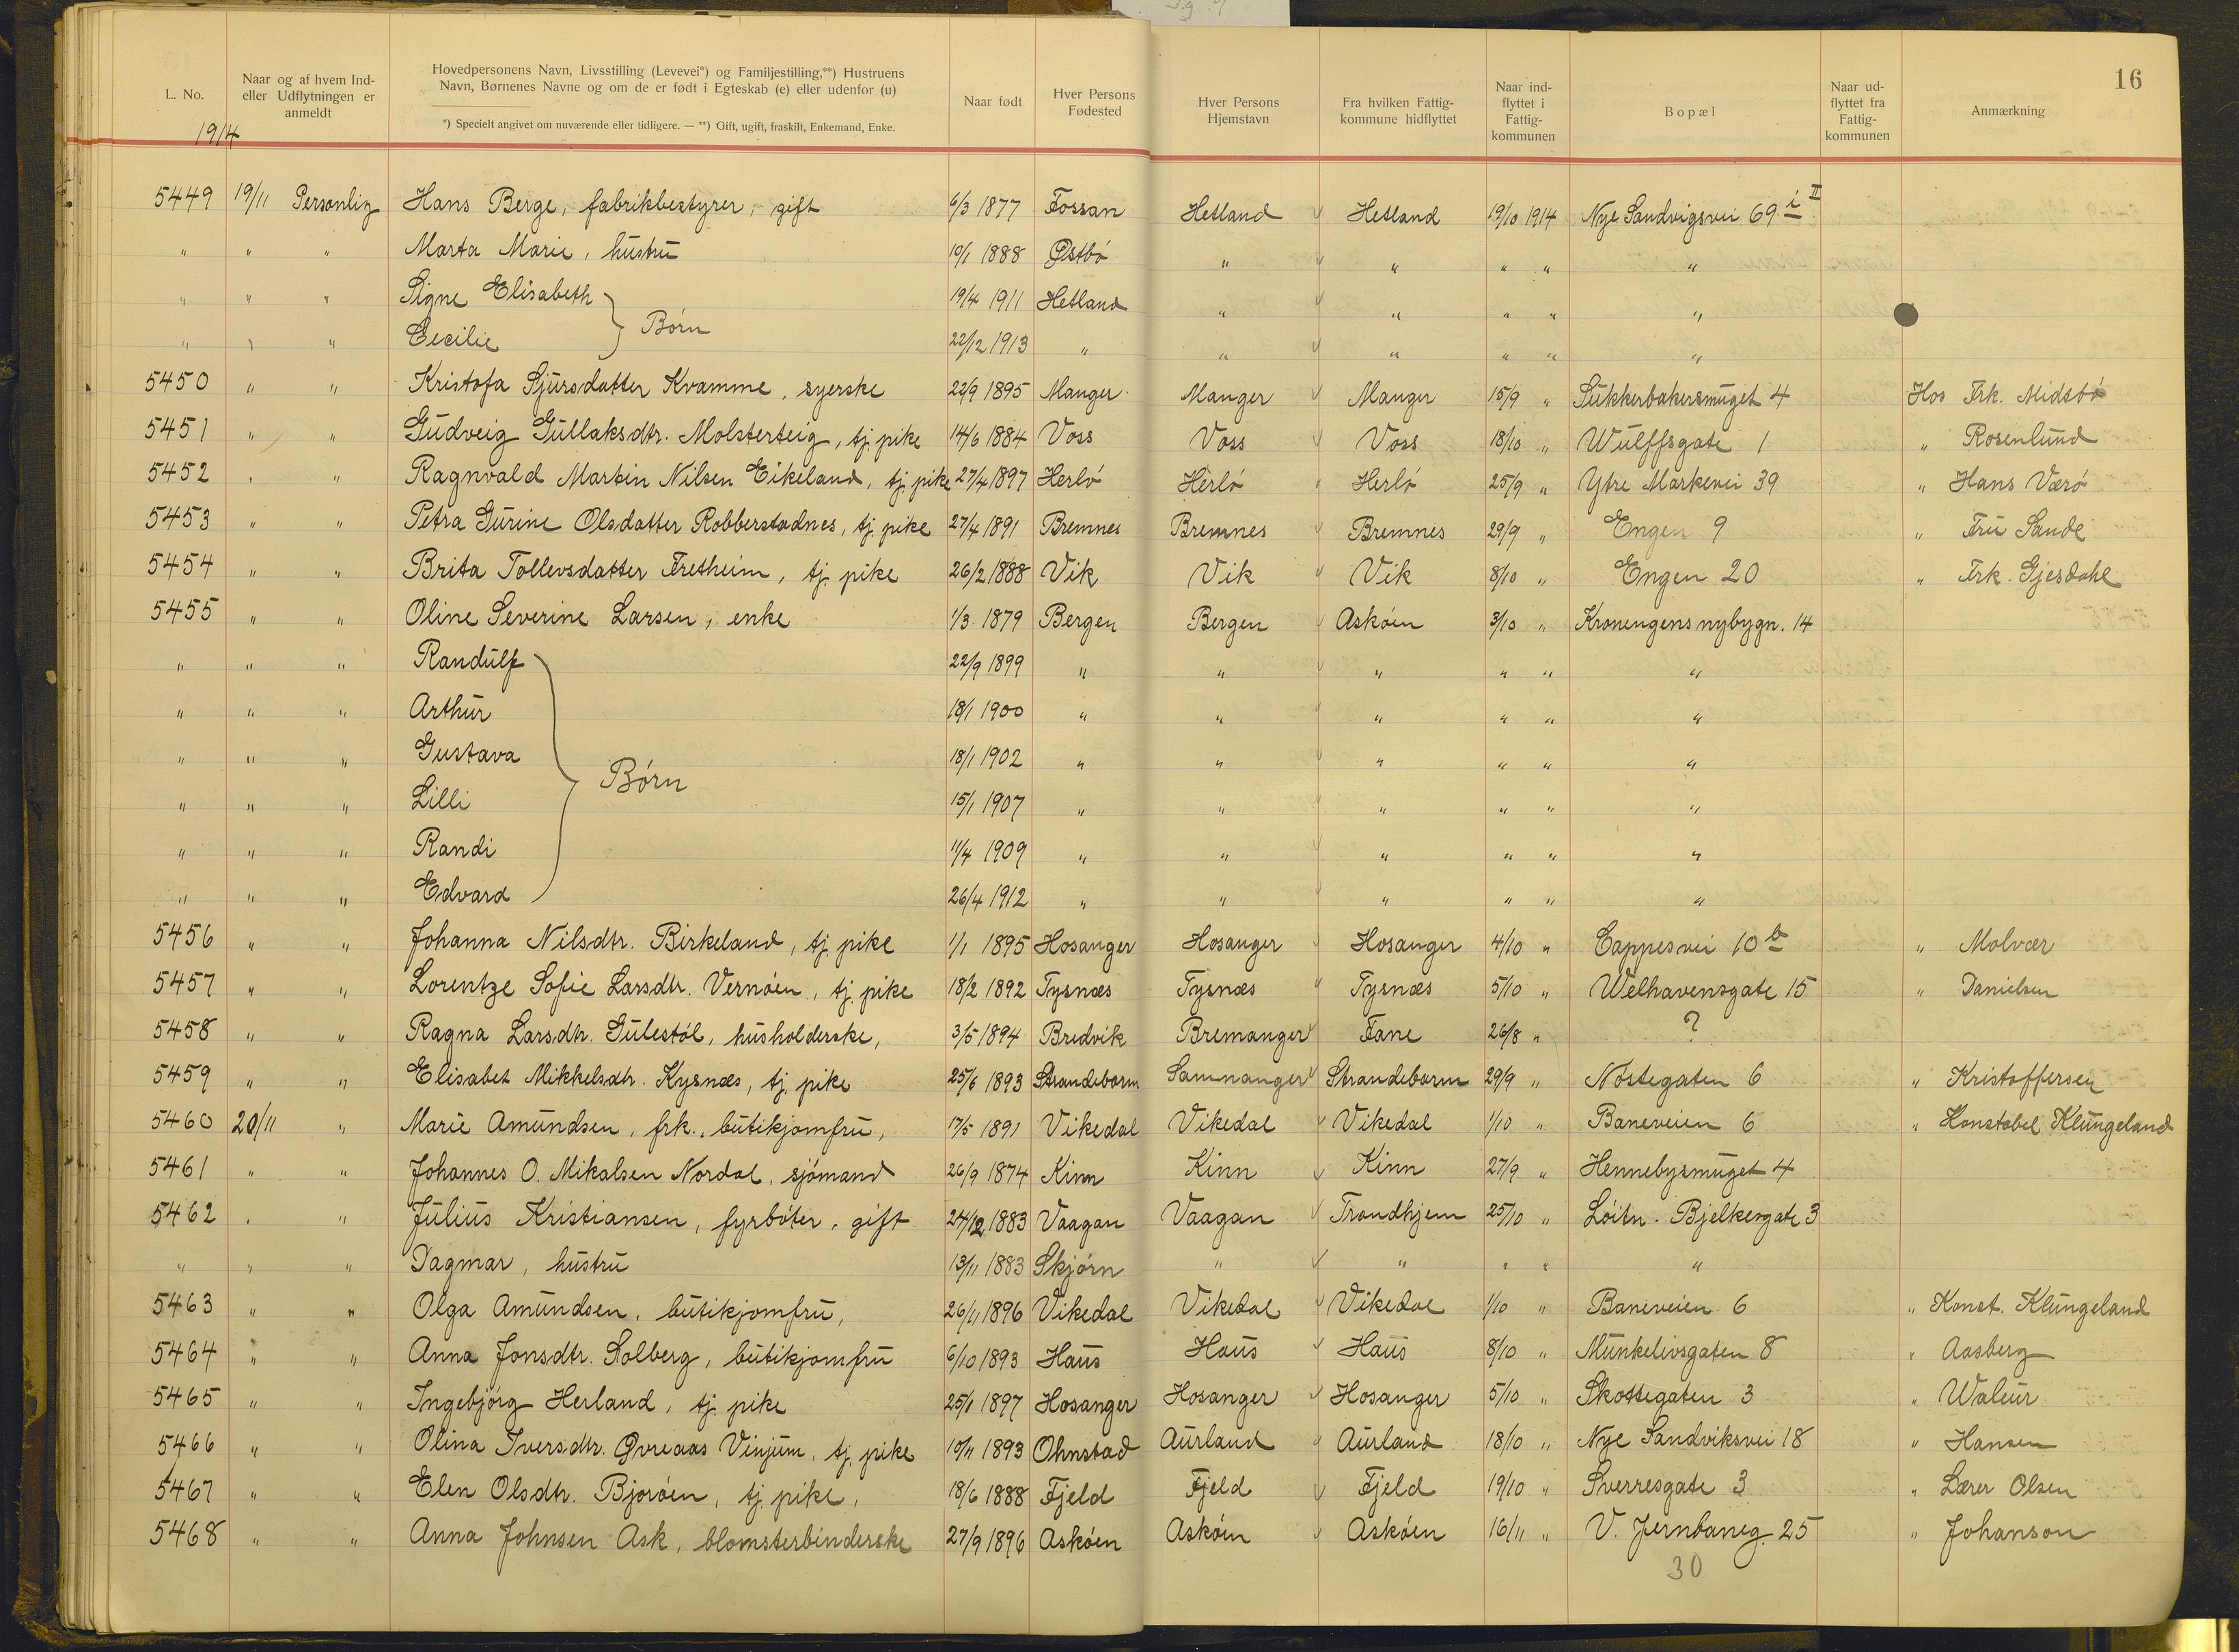 16
L. No.
Naar og af hvem Ind- eller Udflytningen er anmeldt
Hovedpersonens Navn, Livsstilling (Levevei*) og Familjestilling,**) Hustruens Navn, Børnenes Navne og om de er født i Egteskab (e) eller udenfor (u)
*) Specielt angivet om nuværende eller tidligere. — **) Gift, ugift, fraskilt, Enkemand, Enke.
Naar født
Hver Persons Fødested
Hver Persons Hjemstavn
Fra hvilken Fattig- kommune hidflyttet
Naar ind- flyttet i Fattig- kommunen
Bopæl
Naar ud- flyttet fra Fattig- kommunen
Anmærkning
1914
5449 19/11 Personlig Hans Berge, fabrikbestyrer, gift 6/3 1877 Fossan Hetland Hetland 19/10 1914 Nye Sandvigsvei 69 i II
" " " Marta Marie, hustru 10/1 1888 Østbö " " " " "
" " " Signe Elisabeth } Børn 19/4 1911 Hetland " " " " "
" " " Cecilie 22/12 1913 " " " " " "
5450 " " Kristofa Sjursdatter Kvamme, syerske 22/9 1895 Manger Manger Manger 15/9 " Sukkerbakersmuget 4 Hos Frk. Midtbö
5451 " " Gudveig Gullaksdtr. Molsterteig, tj. pike 14/6 1884 Voss Voss Voss 18/10 " Wulffsgate 1 " Rosenlund
5452 " " Ragnvald Martin Nilsen Eikeland, tj. pike 27/4 1897 Herlö Herlö Herlö 25/9 " Ytre Markevei 39 " Hans Værö
5453 " " Petra Gurine Olsdatter Robberstadnes, tj. pike 27/4 1891 Bremnes Bremnes Bremnes 29/9 " Engen 9 " Fru Sande
5454 " " Brita Tollevsdatter Fretheim, tj. pike 26/2 1888 Vik Vik Vik 8/10 " Engen 20 " Frk. Gjesdahl
5455 " " Oline Severine Larsen, enke 1/3 1879 Bergen Bergen Asköen 3/10 " Kronengens nybygn. 14
" " " Randulf 22/9 1899 " " " " " "
" " " Arthur 18/1 1900 " " " " " "
" " " Gustava 18/1 1902 " " " " " "
} Börn
" " " Lilli 15/1 1907 " " " " " "
" " " Randi 11/4 1909 " " " " " "
" " " Edvard 26/4 1912 " " " " " "
5456 " " Johanna Nilsdtr. Birkeland, tj. pike 1/1 1895 Hosanger Hosanger Hosanger 4/10 " Cappesvei 10 b " Molvær
5457 " " Lorentze Sofie Larsdtr. Vernöen, tj. pike 18/2 1892 Tysnæs Tysnæs Tysnæs 5/10 " Welhavensgate 15 " Danielsen
5458 " " Ragna Larsdtr. Gulestöl, husholderske, 3/5 1894 Bredvik Bremanger Fane 26/8 " ?
5459 " " Elisabet Mikkelsdtr. Kysnæs, tj. pike 25/6 1893 Strandebarm Samnanger Strandebarm 29/9 " Nöstegaten 6 " Kristoffersen
5460 20/11 " Marie Amundsen, frk., butikjomfru, 17/5 1891 Vikedal Vikedal Vikedal 1/10 " Baneveien 6 " Konstabel Klungeland
5461 " " Johannes O. Mikalsen Nordal, sjömand 26/9 1874 Kinn Kinn Kinn 27/9 " Hennebysmuget 4
5462 " " Julius Kristiansen, fyrböter, gift 24/12 1883 Vaagan Vaagan Trondhjem 25/10 " Löitn. Bjelkesgate 3
" " " Dagmar, hustru 13/11 1883 Skjörn " " " " "
5463 " " Olga Amundsen, butikjomfru, 26/11 1896 Vikedal Vikedal Vikedal 1/10 " Baneveien 6 " Konst. Klungeland
5464 " " Anna Jonsdtr. Solberg, butikjomfru 6/10 1893 Haus Haus Haus 8/10 " Munkelivsgaten 8 " Aasberg
5465 " " Ingebjörg Herland, tj. pike 25/1 1897 Hosanger Hosanger Hosanger 5/10 " Skottegaten 3 " Waleur
5466 " " Olina Iversdtr. Øvreaas Vinjum, tj. pike 10/11 1893 Ohnstad Aurland Aurland 18/10 " Nye Sandviksvei 18 " Hansen
5467 " " Elen Olsdtr. Bjoröen, tj. pike, 18/6 1888 Fjeld Fjeld Fjeld 19/10 " Sverresgate 3 " Lærer Olsen
5468 " " Anna Johnsen Ask, blomsterbinderske 27/9 1896 Asköen Asköen Asköen 16/11 " V. Jernbaneg. 25 " Johanson
30